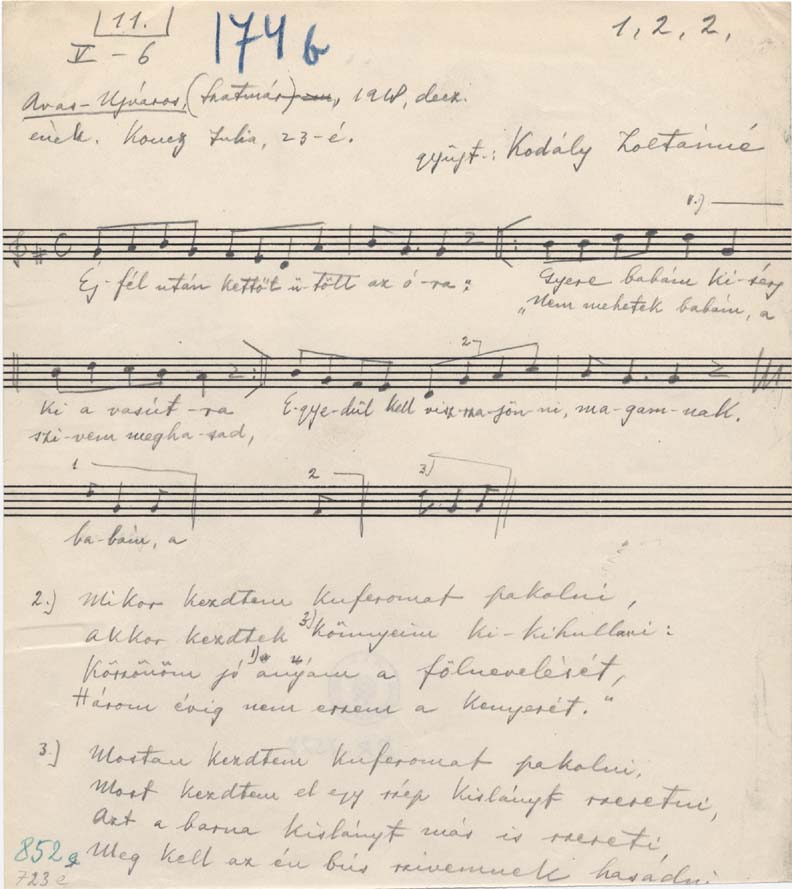 11.
V - 6
174 b
1, 2, 2,
Avas-Ujváros, (Szatmár), 1918, decz.
ének. Koncz Julia, 23-é.
gyüjt.: Kodály Zoltánné
1.)
Éj-fél után kettőt ü-tött az ó-ra:
Gyere babám ki-sérj
"Nem mehetek babám, a
2
ki a vasút-ra
E-gye-dül kell visz-sza-jön-ni, ma-gam-nak.
szi-vem megha-sad,
1
2
3)
ba-bám, a
2.) Mikor kezdtem kuferomat pakolni,
Akkor kezdtek 3) könnyeim ki-kihullani:
Köszönöm jó 1) anyám a fölnevelését,
Három évig nem eszem a kenyerét."
3.) Mostan kezdtem kuferomat pakolni,
Most kezdtem el egy szép kislányt szeretni,
Azt a barna kislányt más is szereti
Meg kell az én bús szivemnek hasadni.
852
723 e